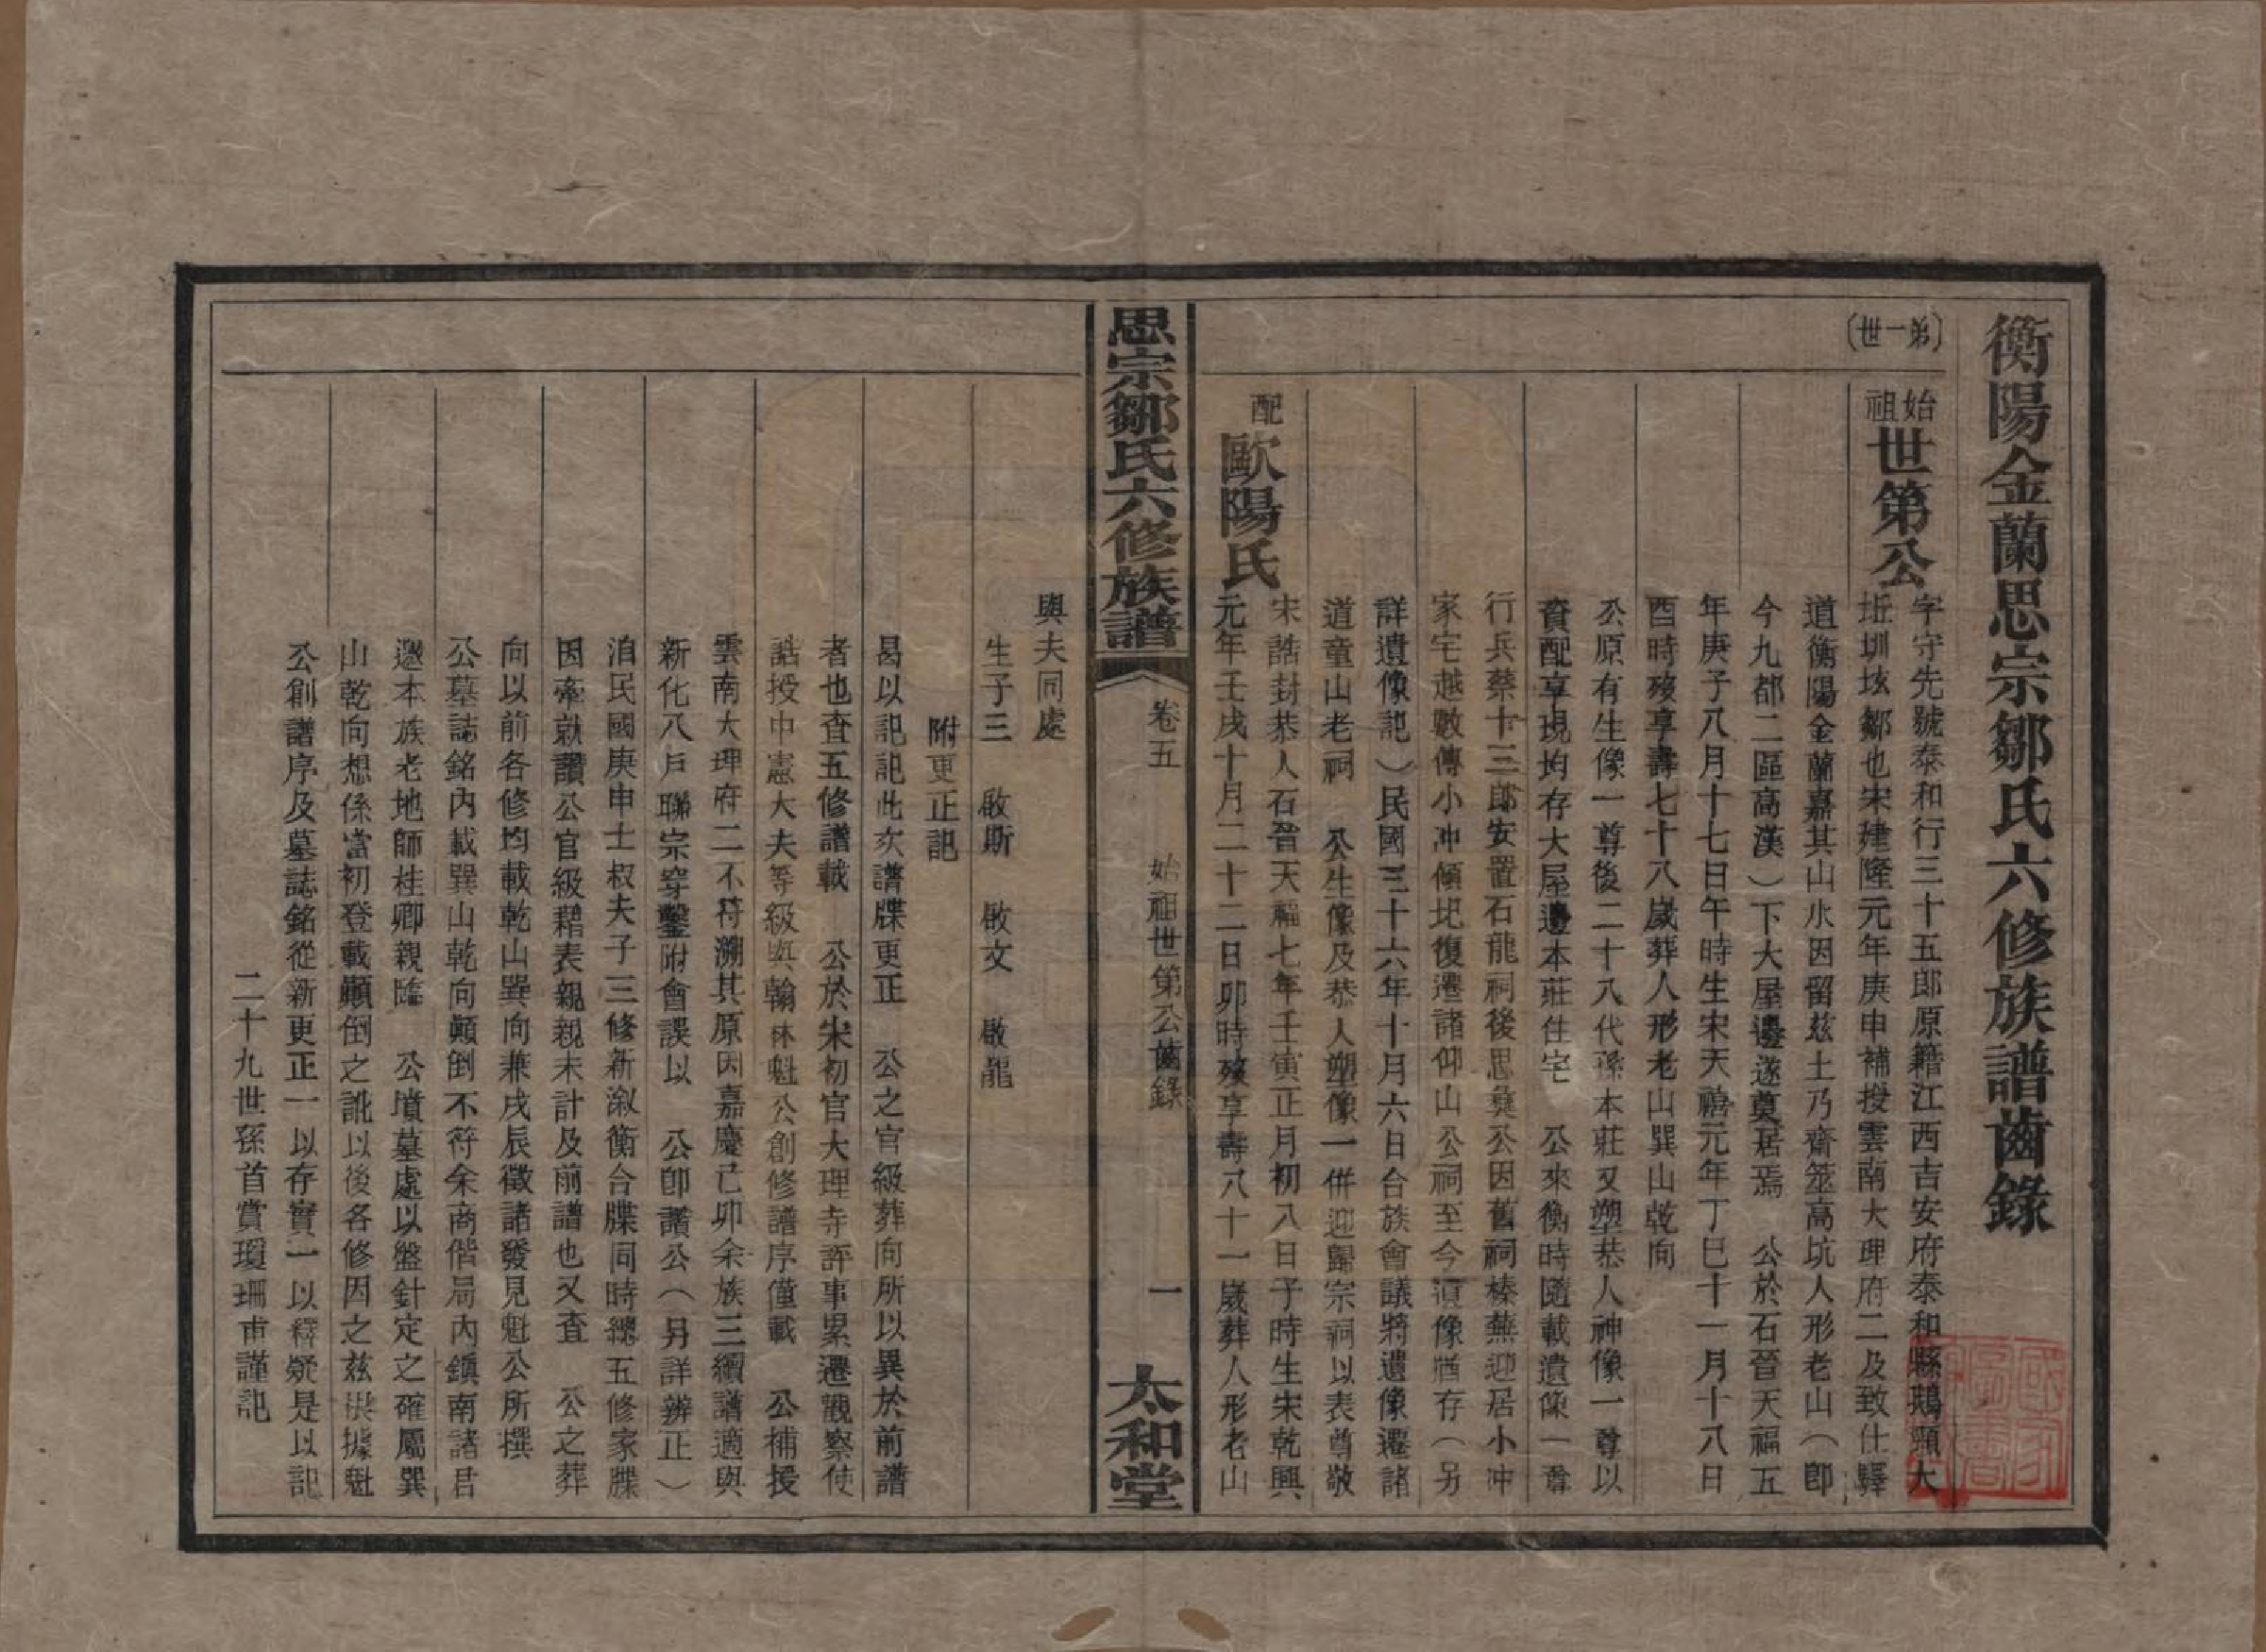 衡陽金蘭思宗鄒氏六修族譜齒錄
〔第一世〕
始祖
世第公
字守先號泰和行三十五郎原籍江西吉安府泰和縣鵝頸大
坵圳垓鄒也宋建隆元年庚申補授雲南大理府二及致仕驛
道衡陽金蘭嘉其山水因留玆土乃齋筮高坑人形老山（卽
今九都二區高漢）下大屋邊遂奠居焉　公於石晉天福五
年庚子八月十七日午時生宋天禧元年丁巳十一月十八日
酉時歿享壽七十八歲葬人形老山巽山乾向
公原有生像一尊後二十八代孫本莊又塑恭人神像一尊以
資配享現均存大屋邊本莊住宅　公來衡時隨載遺像一尊
行兵蔡十三郎安置石龍祠後思彝公因舊祠榛蕪迎居小冲
家宅越數傳小冲傾圮復遷諸仰山公祠至今眞像猶存（另
詳遺像記）民國三十六年十月六日合族會議將遺像遷諸
道童山老祠　公生像及恭人塑像一併迎歸宗祠以表尊敬
配
歐陽氏
宋誥封恭人石晉天福七年壬寅正月初八日子時生宋乾興
元年壬戌十月二十二日卯時歿享壽八十一歲葬人形老山
思宗鄒氏六修族譜
卷五
始祖世第公齒錄
一
太和堂
與夫同處
生子三　啟斯　啟文　啟龍
附更正記
曷以記記此次譜牒更正　公之官級葬向所以異於前譜
者也查五修譜載　公於宋初官大理寺評事累遷觀察使
誥授中憲大夫等級與翰林魁公創修譜序僅載　公補授
雲南大理府二不符溯其原因嘉慶己卯余族三續譜適與
新化八戶聯宗穿鑿附會誤以　公卽讚公（另詳辨正）
洎民國庚申士叔夫子三修新溆衡合牒同時總五修家牒
因牽就讚公官級藉表親親未計及前譜也又查　公之葬
向以前各修均載乾山巽向兼戌辰徵諸發見魁公所撰
公墓誌銘內載巽山乾向顚倒不符余商偕局內鎭南諸君
邀本族老地師桂卿親臨　公墳墓處以盤針定之確屬巽
山乾向想係當初登載顚倒之訛以後各修因之玆洪據魁
公創譜序及墓誌銘從新更正一以存實一以釋疑是以記
二十九世孫首賞瓊珊甫謹記